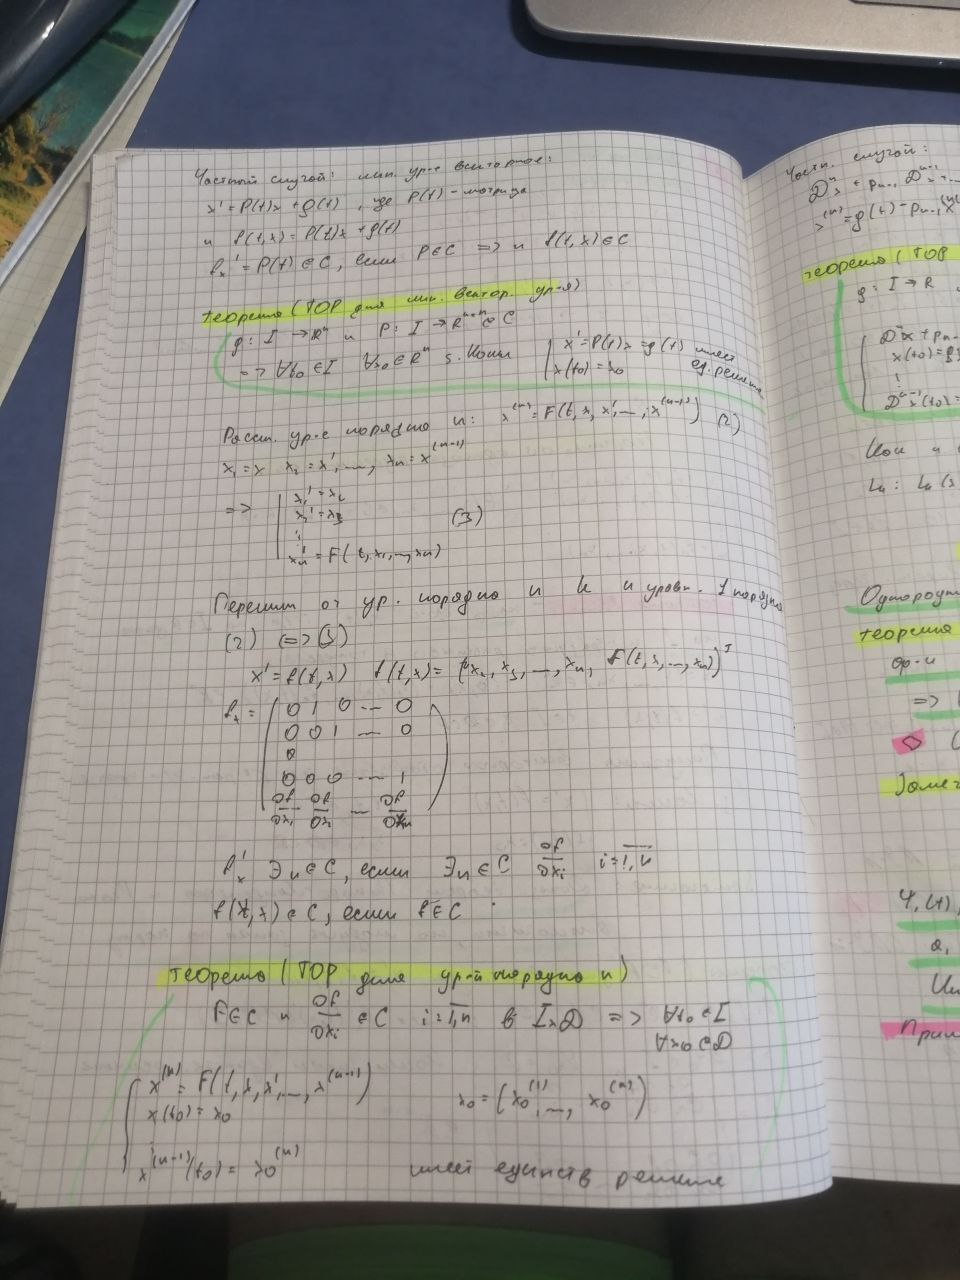 Частный случай: лин. ур-е векторное:
x' = P(t)x + g(t), где P(t) - матрица
и f(t,x) = P(t)x + g(t)
f'ₓ = P(t) ∈ C, если P∈C => и f(t,x)∈C
Теорема (ТОР для лин. вектор. ур-я)
g: I → Rⁿ и P: I → Rⁿˣⁿ ∈ C
=> ∀t₀∈I ∀x₀∈Rⁿ з. Коши { x' = P(t)x = g(t) имеет
x(t₀) = x₀ ед. решение
Рассм. ур-е порядка n: x⁽ⁿ⁾ = F(t, x, x', ..., x⁽ⁿ⁻¹⁾) (2)
x₁ = x x₂ = x', ..., xₙ = x⁽ⁿ⁻¹⁾
=> x₁' = x₂
x₂' = x₃
⋮ (3)
xₙ' = F(t, x₁, ..., xₙ)
Перешли от ур. порядка n к n уравн. 1 порядка
(2) <=> (3)
x' = f(t,x) f(t,x) = (x₂, x₃, ..., xₙ, F(t, x, ..., xₙ))ᵀ
fₓ = ( 0 1 0 ... 0
0 0 1 ... 0
0
0 0 0 ... 1
∂f/∂x₁ ∂f/∂x₂ ... ∂f/∂xₙ )
f'ₓ Эл ∈ C, если Эл ∈ C ∂f/∂xᵢ i = 1,n
f(t,x) ∈ C, если f∈C
Теорема (ТОР для ур-й порядка n)
F∈C и ∂f/∂xᵢ ∈ C i = 1,n в I×D => ∀t₀∈I
∀x₀∈D
{ x⁽ⁿ⁾ = F(t, x, x', ..., x⁽ⁿ⁻¹⁾)
x(t₀) = x₀ x₀ = (x₀⁽¹⁾, ..., x₀⁽ⁿ⁾)
⋮
x⁽ⁿ⁻¹⁾(t₀) = x₀⁽ⁿ⁾ имеет единств решение
Частн. случай:
Dⁿx + pₙ₋₁ Dⁿ⁻¹x + ...
x⁽ⁿ⁾ = g(t) - pₙ₋₁ x
Теорема (ТОР
g: I → R
Dⁿx + pₙ₋
x(t₀) =
⋮
Dⁿ⁻¹x(t₀) =
Lₙ: Lₙ(
Однород
Теорема
ор-и
=>
Замеч
φ₁(t),
a₁
Прим